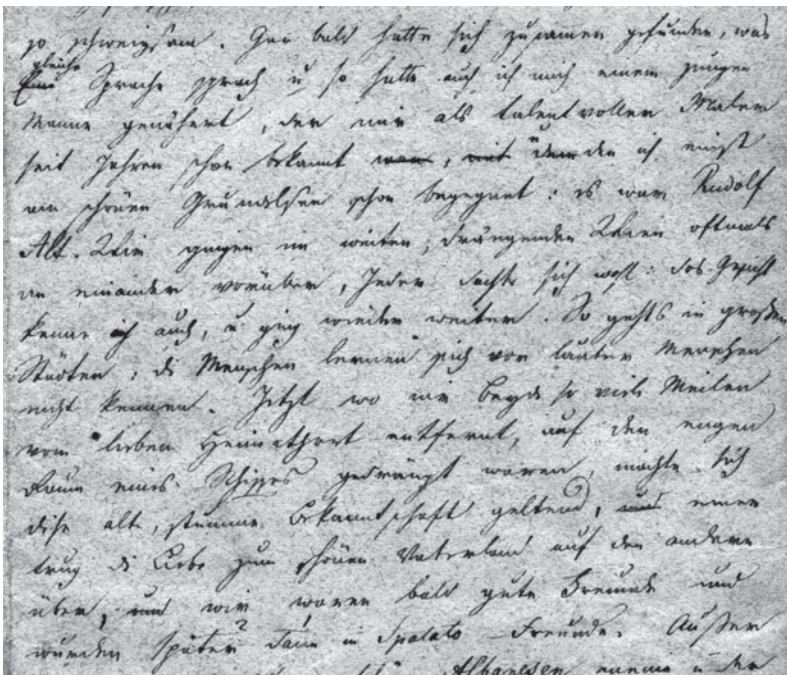 so schweigsam. Gar bald hatte sich zusamen gefunden, was
gleiche
Eine Sprache sprach u so hatte auch ich mich einem jungen
Manne genähert, der mir als talentvoller Maler
seit Jahren schon bekannt war, mit dem den ich einst
am schönen Grundlsee schon begegnet: es war Rudolf
Alt. Wir gingen im weiten, drängenden Wien oftmals
an einander vorüber, Jeder dachte sich wohl: das Gesicht
kenne ich auch, u. ging wieder weiter. So gehts in großen
Städten: di Menschen lernen sich vor lauter Menschen
nicht kennen. Jetzt wo wir beyde so viele Meilen
vom lieben Heimathort entfernt, auf den engen
Raum eines Schiffes gedrängt waren, machte sich
dise alte, stumme Bekanntschaft geltend, und einer
trug di Liebe zum schönen Vaterland auf den andern
über, und wir waren bald gute Freunde und
wurden später dann in Spalato – Freunde. Außer
Albanesen